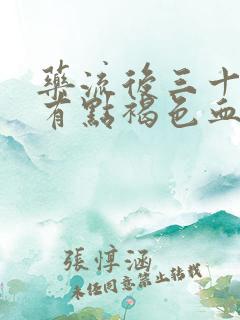 藥流後三十
有點褐色血
張惇涵
未經同意禁止轉載